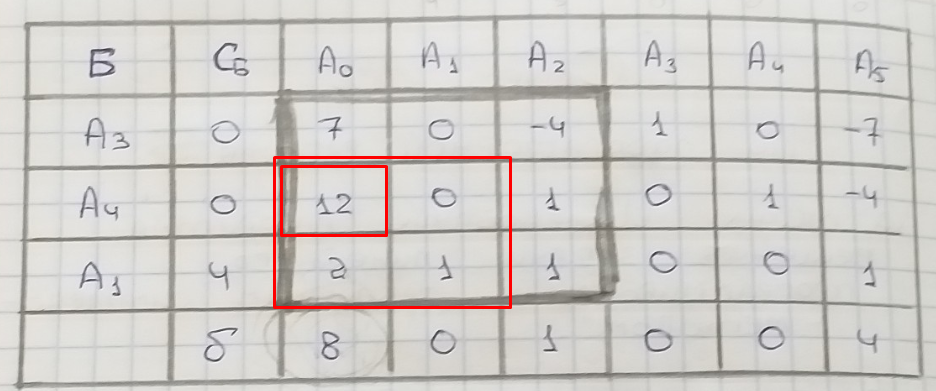 Б Сб A0 A1 A2 A3 A4 A5
A3 0 7 0 -4 1 0 -7
A4 0 12 0 1 0 1 -4
A1 4 2 1 1 0 0 1
δ 8 0 1 0 0 4